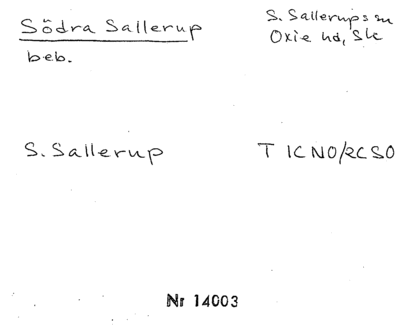 Södra Sallerup
beb.
S. Sallerups sn
Oxie hd, Sk
S. Sallerup
T 1C NO/2C SO
Nr 14003